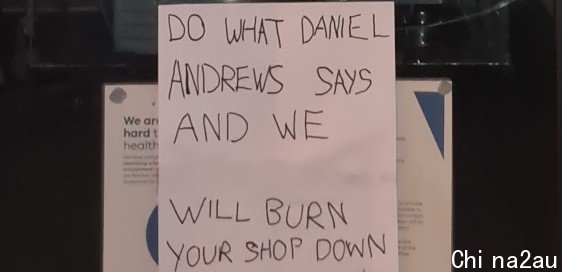 DO WHAT DANIEL
ANDREWS SAYS
AND WE
WILL BURN
YOUR SHOP DOWN
We are
hard t
health
Chi na2au